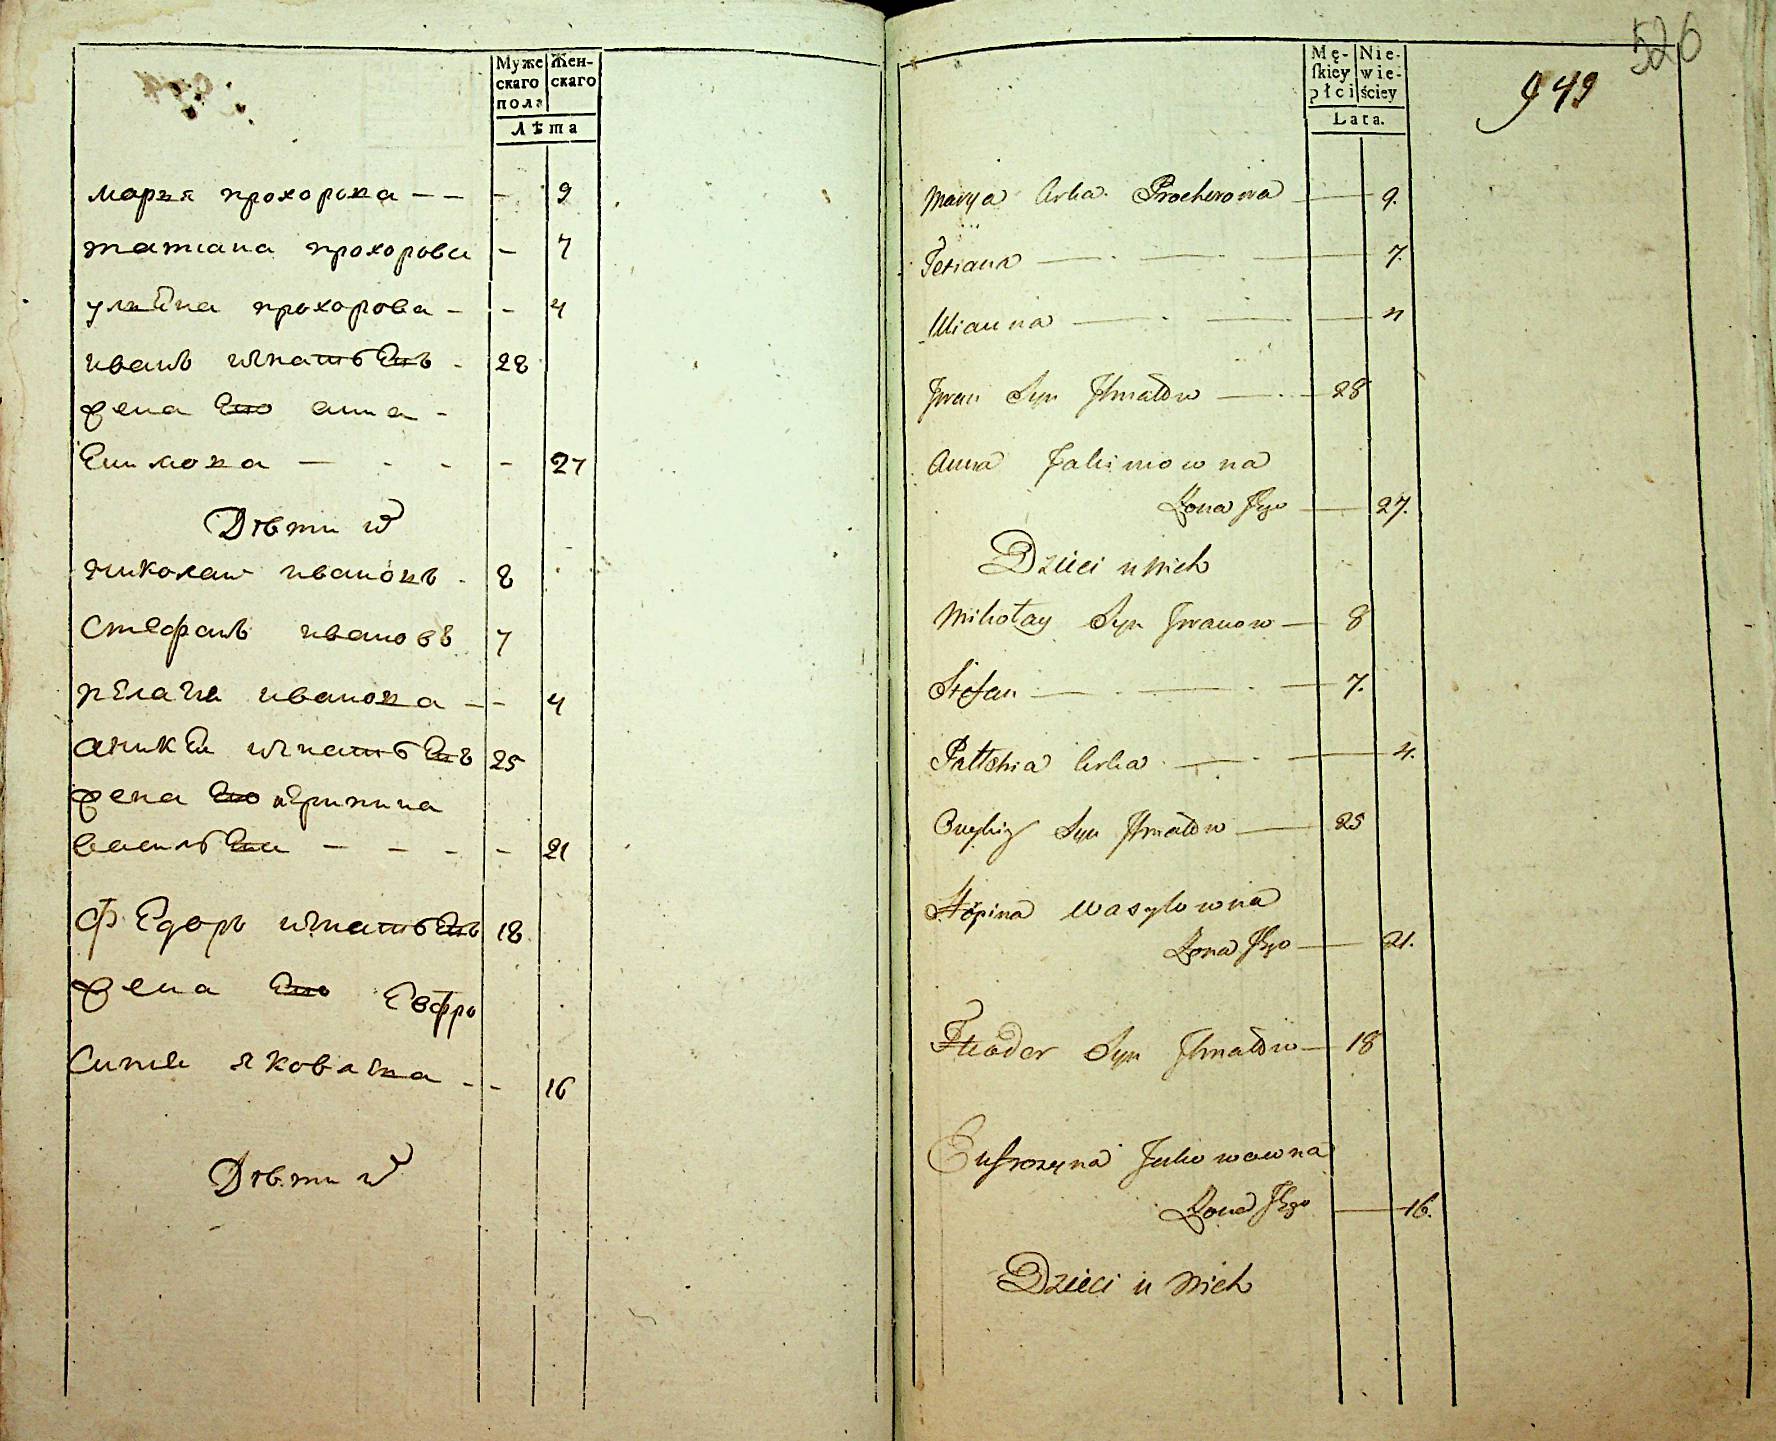 Муже скаго пола
Жен- скаго
Лѣта
марья прохорова — — - 9
татиана прохорова - 7
улиѣна прохорова - - 4
иванъ игнатьевъ - 28
жена ево анна -
екимова — - - - 27
Дѣти ихъ
николаи ивановъ - 8
стефанъ ивановъ 7
пелагия иванова - - 4
аникеи игнатьевъ 25
жена ево
васильева - - - - 21
Федоръ игнатьевъ 18
жена ево евфро
синия яковлева - - 16
Дѣти ихъ
526
949
Mę- skiey płci
Nie- wie- ściey
Lata.
Marya Corka Prochorowa — 9.
Tetiana — 7.
Ulianna — 4
Jwan Syn Jhnatow — 28
Anna Jakimowna
Żona Jego — 27.
Dzieci u Nich
Mikołay Syn Jwanow — 8
Stefan — 7.
Corka — 4.
Syn Jhnatow — 25
Wasylowna
Żona Jego — 21.
Theodor Syn Jhnatow — 18
Eufrozyna Jakowowna
Żona Jego — 16.
Dzieci u Nich